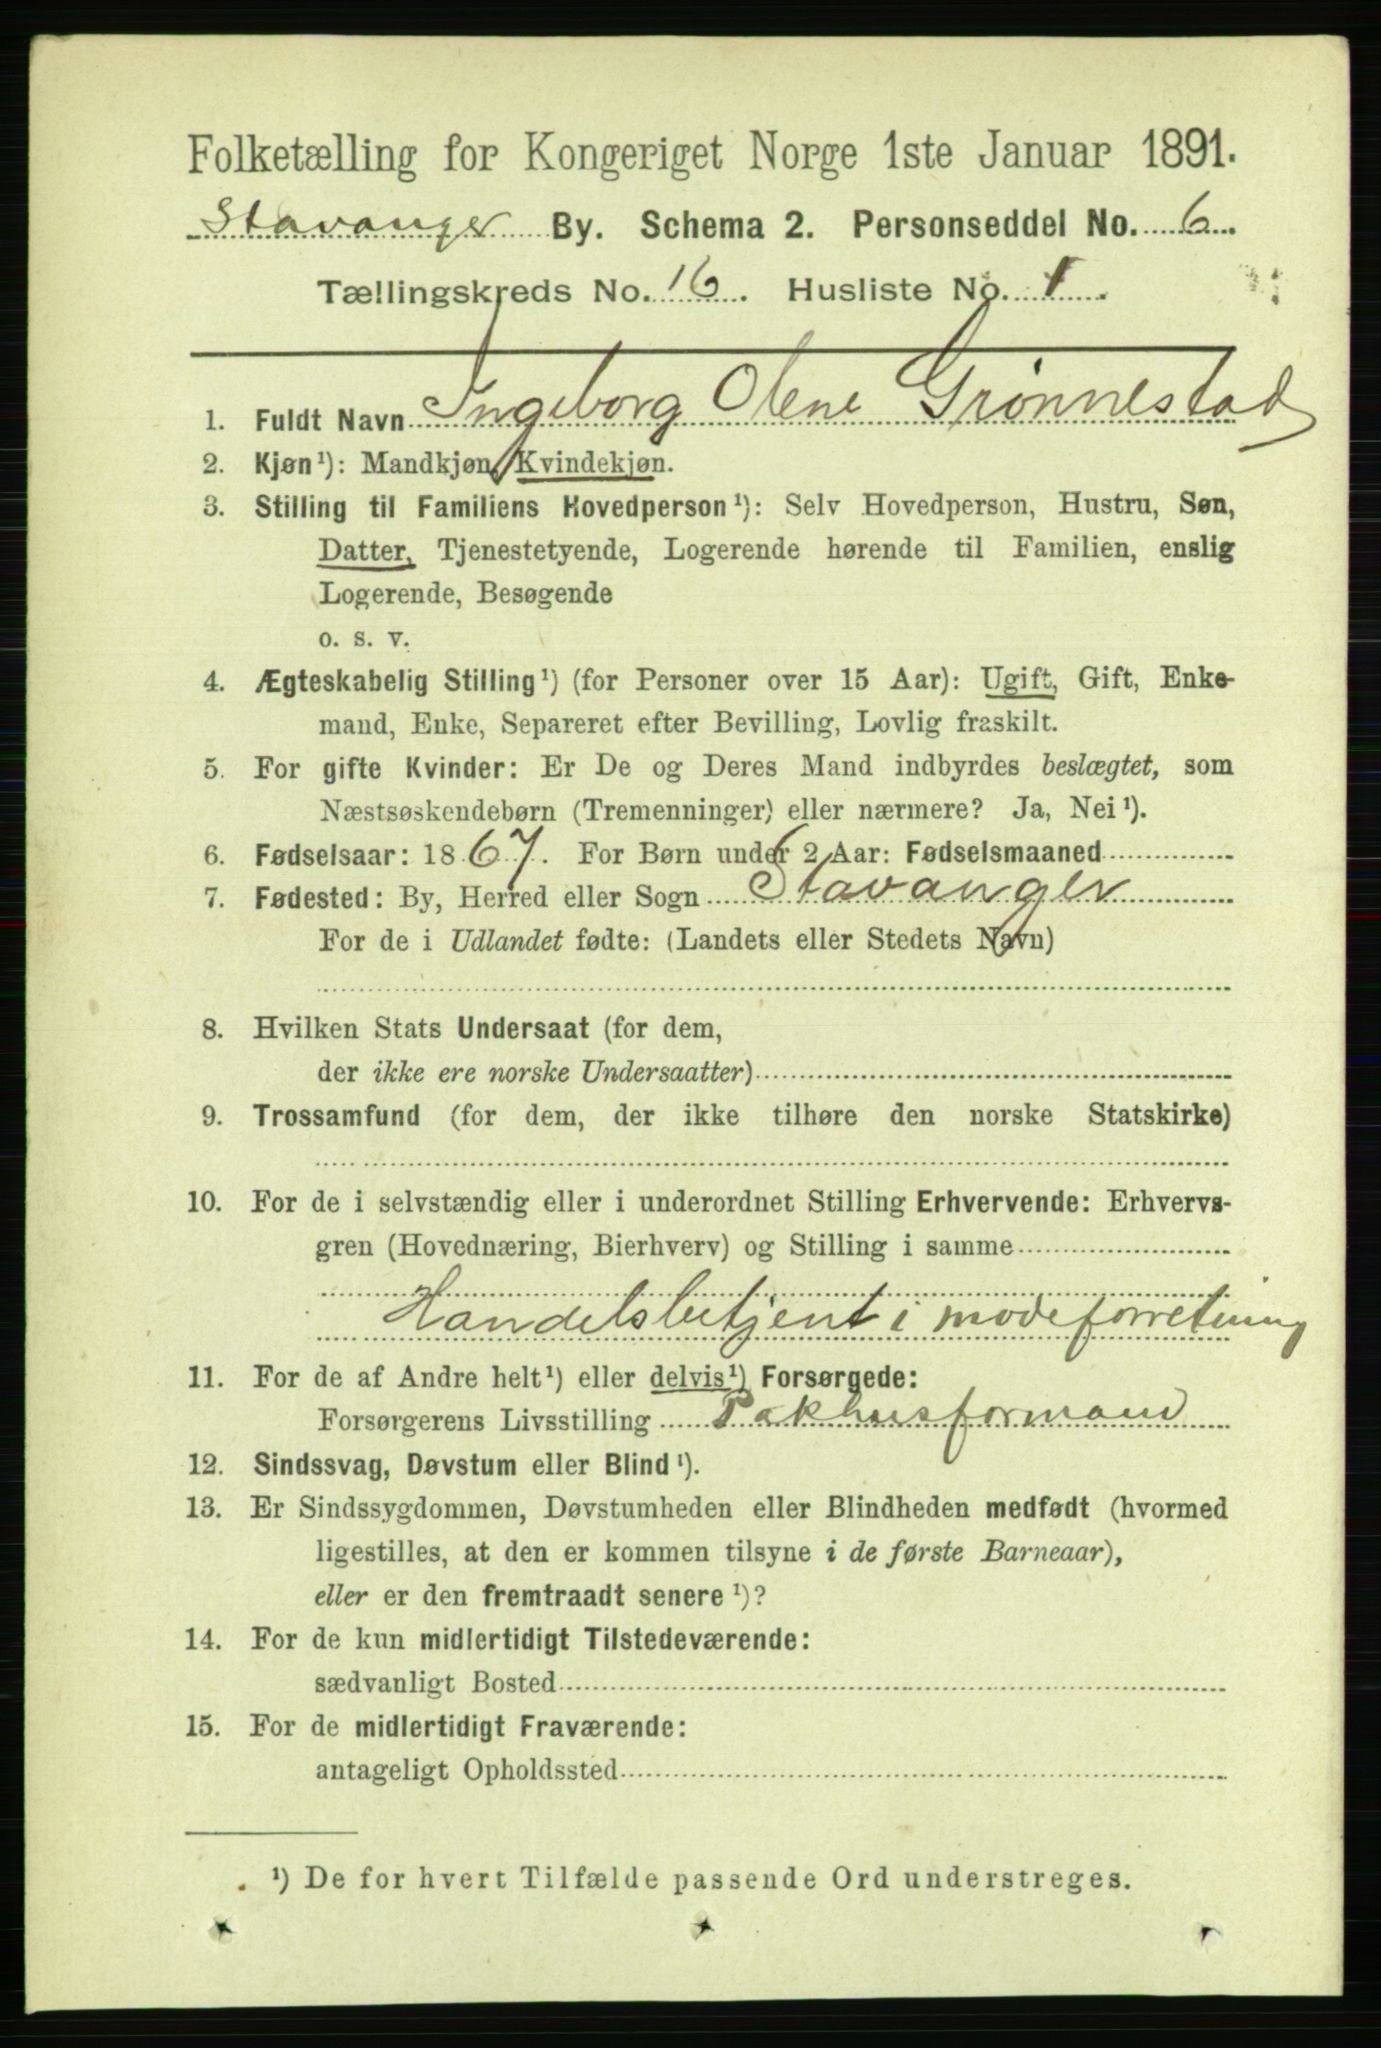 Folketælling for Kongeriget Norge 1ste Januar 1891.
Stavanger By. Schema 2. Personseddel No. 6.
Tællingskreds No. 16. Husliste No. 1.
1. Fuldt Navn Ingeborg Olene Grønnestad
2. Kjøn¹): Mandkjøn, Kvindekjøn.
3. Stilling til Familiens Hovedperson¹): Selv Hovedperson, Hustru, Søn,
Datter, Tjenestetyende, Logerende hørende til Familien, enslig
Logerende, Besøgende
o. s. v.
4. Ægteskabelig Stilling¹) (for Personer over 15 Aar): Ugift, Gift, Enke-
mand, Enke, Separeret efter Bevilling, Lovlig fraskilt.
5. For gifte Kvinder: Er De og Deres Mand indbyrdes beslægtet, som
Næstsøskendebørn (Tremenninger) eller nærmere? Ja, Nei¹).
6. Fødselsaar: 1867. For Børn under 2 Aar: Fødselsmaaned
7. Fødested: By, Herred eller Sogn Stavanger
For de i Udlandet fødte: (Landets eller Stedets Navn)
8. Hvilken Stats Undersaat (for dem,
der ikke ere norske Undersaatter)
9. Trossamfund (for dem, der ikke tilhøre den norske Statskirke)
10. For de i selvstændig eller i underordnet Stilling Erhvervende: Erhvervs-
gren (Hovednæring, Bierhverv) og Stilling i samme
Handelsbetjent i modeforretning
11. For de af Andre helt¹) eller delvis¹) Forsørgede:
Forsørgerens Livsstilling Pakhusformand
12. Sindssvag, Døvstum eller Blind¹).
13. Er Sindssygdommen, Døvstumheden eller Blindheden medfødt (hvormed
ligestilles, at den er kommen tilsyne i de første Barneaar),
eller er den fremtraadt senere¹)?
14. For de kun midlertidigt Tilstedeværende:
sædvanligt Bosted
15. For de midlertidigt Fraværende:
antageligt Opholdssted
¹) De for hvert Tilfælde passende Ord understreges.